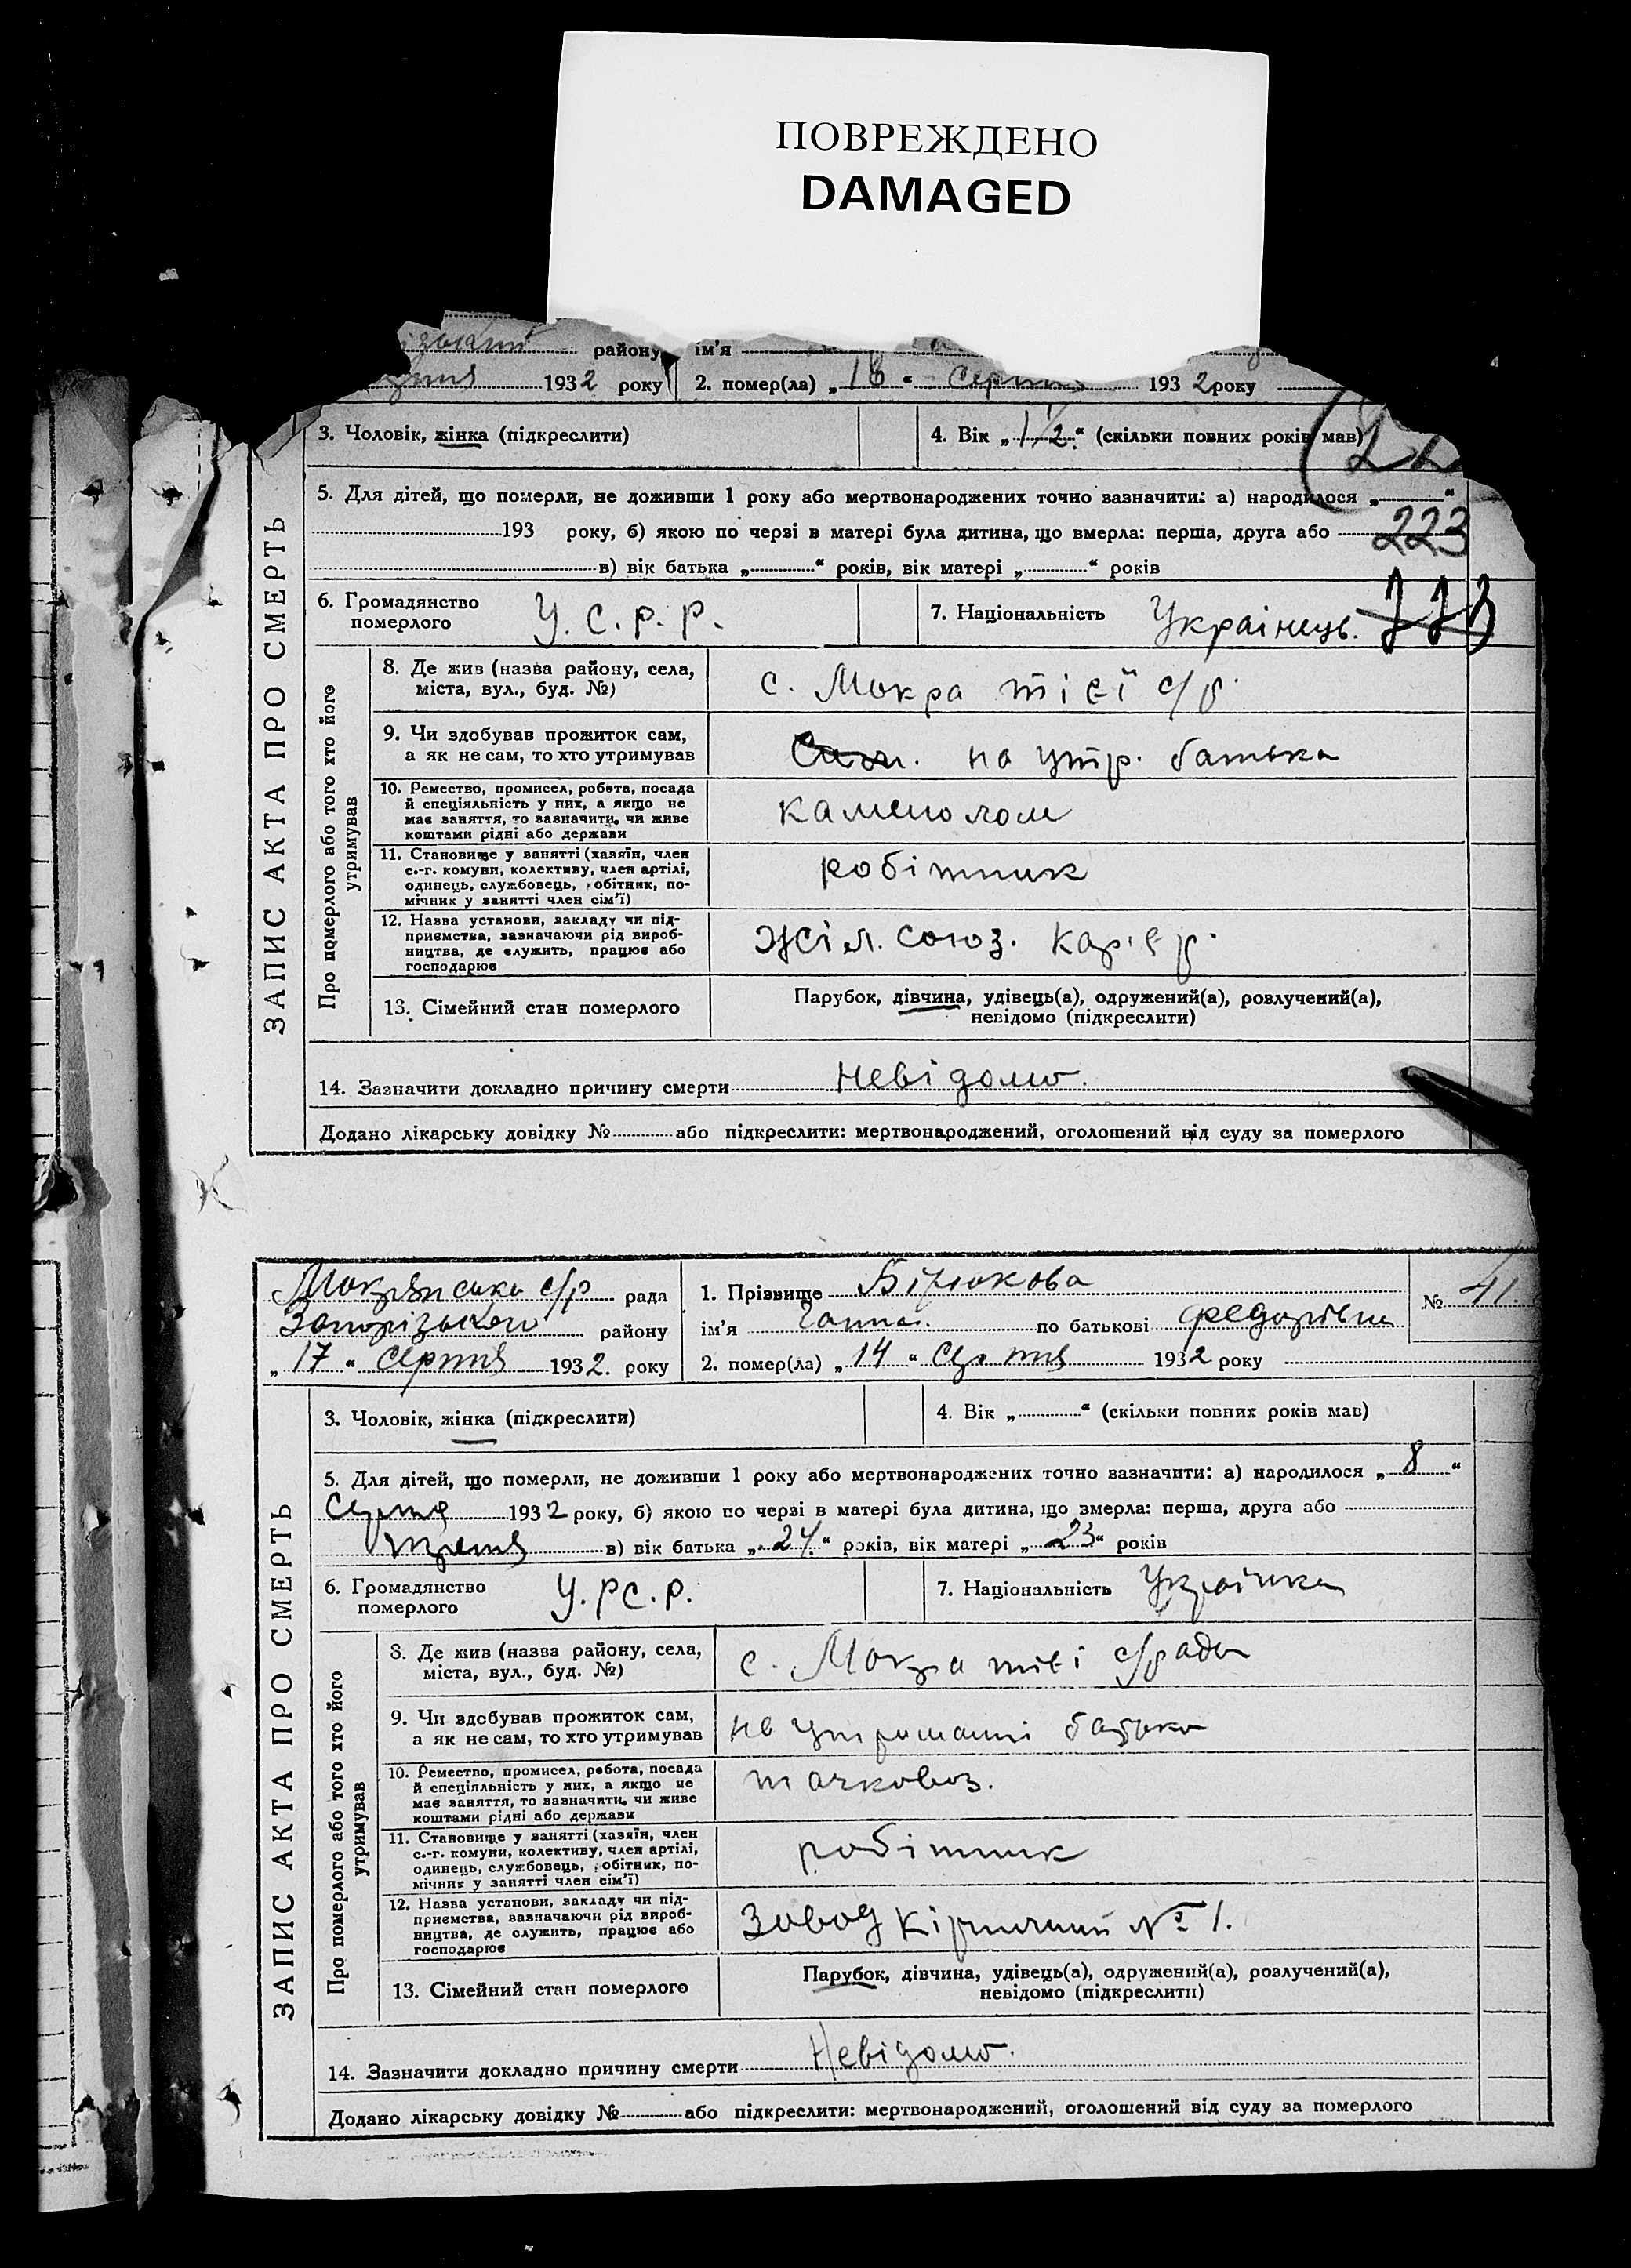 ПОВРЕЖДЕНО
DAMAGED
району ім'я
1932 року 2. помер(ла) „ “ Серпня 1932 року
3. Чоловік, жінка (підкреслити) 4. Вік „1 1/2“ (скільки повних років мав)
5. Для дітей, що померли, не доживши 1 року або мертвонароджених точно зазначити: а) народилося „ “
193 року, б) якою по черзі в матері була дитина, що вмерла: перша, друга або
223
в) вік батька „ “ років, вік матері „ “ років
6. Громадянство померлого У.С.Р.Р. 7. Національність Українець.
ЗАПИС АКТА ПРО СМЕРТЬ
Про померлого або того хто його утримував
8. Де жив (назва району, села, міста, вул., буд. №) с. Мокра тієї с/р.
9. Чи здобував прожиток сам, а як не сам, то хто утримував на утр. батька
10. Ремество, промисел, робота, посада й спеціяльність у них, а якщо не має заняття, то зазначити, чи живе коштами рідні або держави каменолом
11. Становище у занятті (хазяїн, член с.-г. комуни, колективу, член артілі, одинець, службовець, робітник, помічник у занятті член сім'ї) робітник
12. Назва установи, закладу чи підприємства, зазначаючи рід виробництва, де служить, працює або господарює Жіл. союз. Кар'єр.
13. Сімейний стан померлого Парубок, дівчина, удівець(а), одружений(а), розлучений(а), невідомо (підкреслити)
14. Зазначити докладно причину смерти Невідомо.
Додано лікарську довідку № або підкреслити: мертвонароджений, оголошений від суду за померлого
Мокрянська с/р рада 1. Прізвище Бірюкова № 41.
Запорізького району ім'я Ганна. по батькові Федорівна
„17“ Серпня 1932. року 2. помер(ла) „14“ Серпня 1932 року
3. Чоловік, жінка (підкреслити) 4. Вік „ “ (скільки повних років мав)
5. Для дітей, що померли, не доживши 1 року або мертвонароджених точно зазначити: а) народилося „8“
Серпня 1932 року, б) якою по черзі в матері була дитина, що вмерла: перша, друга або
третя в) вік батька „24.“ років, вік матері „23“ років
6. Громадянство померлого У.РС.Р. 7. Національність Українка
ЗАПИС АКТА ПРО СМЕРТЬ
Про померлого або того хто його утримував
8. Де жив (назва району, села, міста, вул., буд. №) с. Мокра тієі с/ради
9. Чи здобував прожиток сам, а як не сам, то хто утримував на утриманні батька
10. Ремество, промисел, робота, посада й спеціяльність у них, а якщо не має заняття, то зазначити, чи живе коштами рідні або держави тачковоз.
11. Становище у занятті (хазяїн, член с.-г. комуни, колективу, член артілі, одинець, службовець, робітник, помічник у занятті член сім'ї) робітник
12. Назва установи, закладу чи підприємства, зазначаючи рід виробництва, де служить, працює або господарює Завод Кірпичний № 1.
13. Сімейний стан померлого Парубок, дівчина, удівець(а), одружений(а), розлучений(а), невідомо (підкреслити)
14. Зазначити докладно причину смерти Невідомо.
Додано лікарську довідку № або підкреслити: мертвонароджений, оголошений від суду за померлого